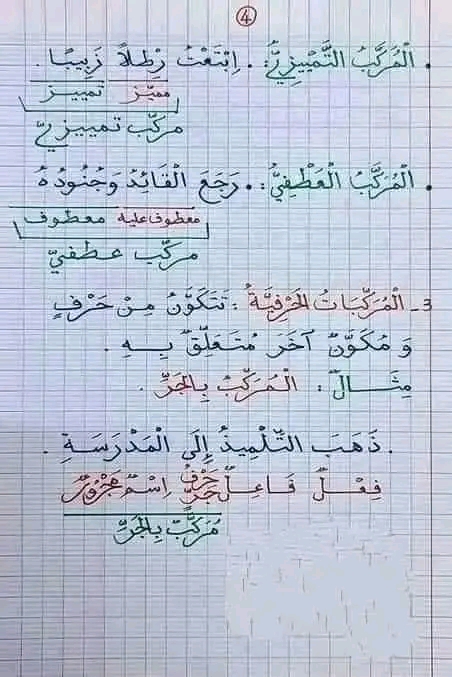 ④
• الْمُرَكَّبُ التَّمْيِيزِيُّ: • اِبْتَعْتُ رِطْلاً زَبِيبًا .
مميّز تمييز
مركّب تمييزيّ
• الْمُرَكَّبُ الْعَطْفِيُّ: • رَجَعَ الْقَائِدُ وَجُنُودُهُ
معطوف عليه معطوف
مركّب عطفيّ
3- الْمُرَكَّبَاتُ الحَرْفِيَّةُ : تَتَكَوَّنُ مِنْ حَرْفٍ
وَ مُكَوَّنٍ آخَرَ مُتَعَلِّقٍ بِهِ .
مِثَالٌ : الْمُرَكَّبُ بِالجَرِّ .
. ذَهَبَ التِّلْمِيذُ إِلَى الْمَدْرَسَةِ .
فِعْلٌ فَاعِلٌ حَرْفُ جَرٍّ اِسْمٌ مَجْرُورٌ
مُرَكَّبٌ بِالجَرِّ